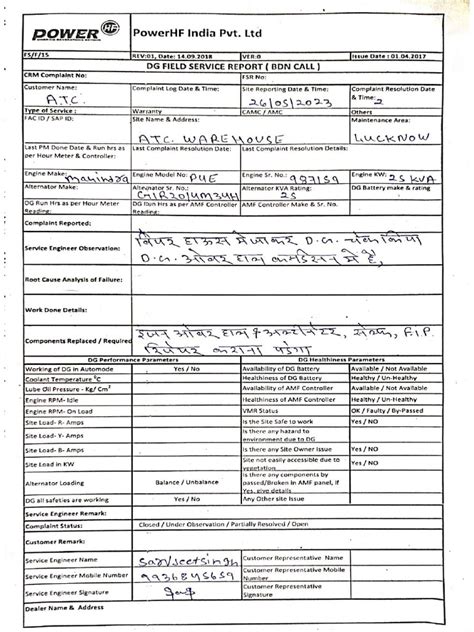 POWER HF
PowerHF India Pvt. Ltd
FS/F/15 REV:01, Date: 14.09.2018 VER:0 Issue Date : 01.04.2017
DG FIELD SERVICE REPORT ( BDN CALL )
CRM Complaint No: FSR No:
Customer Name: Complaint Log Date & Time: Site Reporting Date & Time: Complaint Resolution Date & Time:
A.T.C. 26/05/2023 2
Type of Service : Warranty CAMC / AMC Others
FAC ID / SAP ID: Site Name & Address: Maintenance Area:
A.T.C. WAREHOUSE LUCKNOW
Last PM Done Date & Run hrs as per Hour Meter & Controller: Last Complaint Resolution Date: Last Complaint Resolution Details:
Engine Make: Mahindra Engine Model No: Engine Sr. No.: Engine KW: 25 KVA
Alternator Make: Alternator Sr. No.: Alternator KVA Rating: 25 DG Battery make & rating
DG Run Hrs as per Hour Meter Reading: DG Run Hrs as per AMF Controller Reading: AMF Controller Make & Sr. No.
Complaint Reported:
Service Engineer Observation:
D.G. ओवर हाल कन्डिसन में है,
Root Cause Analysis of Failure:
Work Done Details:
Components Replaced / Required
इंजन ओवर हाल F.I.P.
रिपेयर कराना पड़ेगा
DG Performance Parameters DG Healthiness Parameters
Working of DG in Automode Yes / No Availability of DG Battery Available / Not Available
Coolant Temperature °C Healthiness of DG Battery Healthy / Un-Healthy
Lube Oil Pressure - Kg/ Cm² Availability of AMF Controller Available / Not Available
Engine RPM- Idle Healthiness of AMF Controller Healthy / Un-Healthy
Engine RPM- On Load VMR Status OK / Faulty / By-Passed
Site Load- R- Amps Is the Site Safe to work Yes / No
Site Load- Y- Amps Is there any hazard to environment due to DG
Site Load- B- Amps Is there any Site Owner Issue Yes / No
Site Load in KW Site not easily accessible due to vegetation
Alternator Loading Balance / Unbalance Is there any components by passed/Broken in AMF panel, if Yes, give details
DG all safeties are working Yes / No Any Other site Issue
Service Engineer Remark:
Complaint Status: Closed / Under Observation / Partially Resolved / Open
Customer Remark:
Service Engineer Name Sarvjeet singh Customer Representative Name
Service Engineer Mobile Number 9936845659 Customer Representative Mobile Number
Service Engineer Signature Customer Representative Signature
Dealer Name & Address